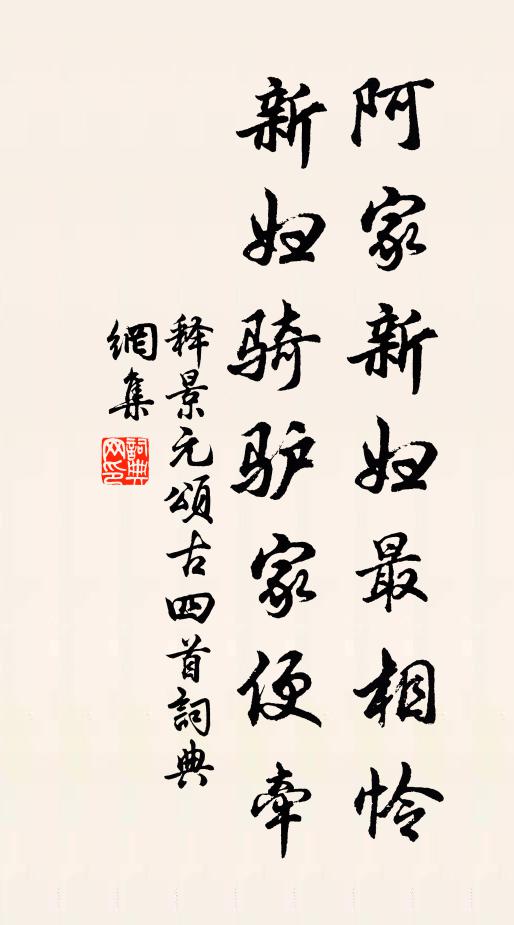 阿家新妇最相怜
新妇骑驴家便牵
释景元頌古四首詞典
網集
詞典网印